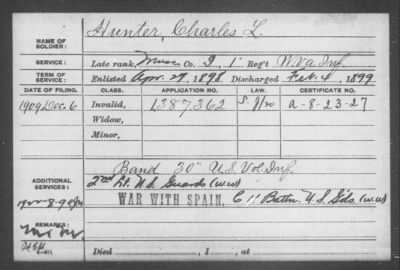 NAME OF SOLDIER: Hunter, Charles L.
SERVICE: Late rank, Musc Co. I, 1" Reg't W.Va Inf.
TERM OF SERVICE: Enlisted Apr. 27, 1898 Discharged Feb. 4, 1899
DATE OF FILING. CLASS. APPLICATION NO. LAW. CERTIFICATE NO.
1909 Dec. 6 Invalid, 1387362 a-8-23-27
Widow,
Minor,
ADDITIONAL SERVICES: Band 30" U.S. Vol. Inf.
2nd Lt. U.S. Guards (w.w)
WAR WITH SPAIN, C 11 Battn. U.S. Gds. (w.w)
REMARKS:
Died , 1 , at